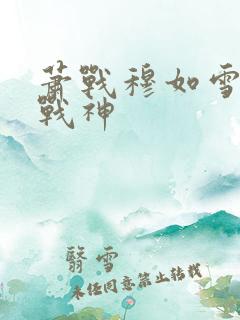 蕭戰穆如雪
戰神
翳雪
未经同意禁止转载